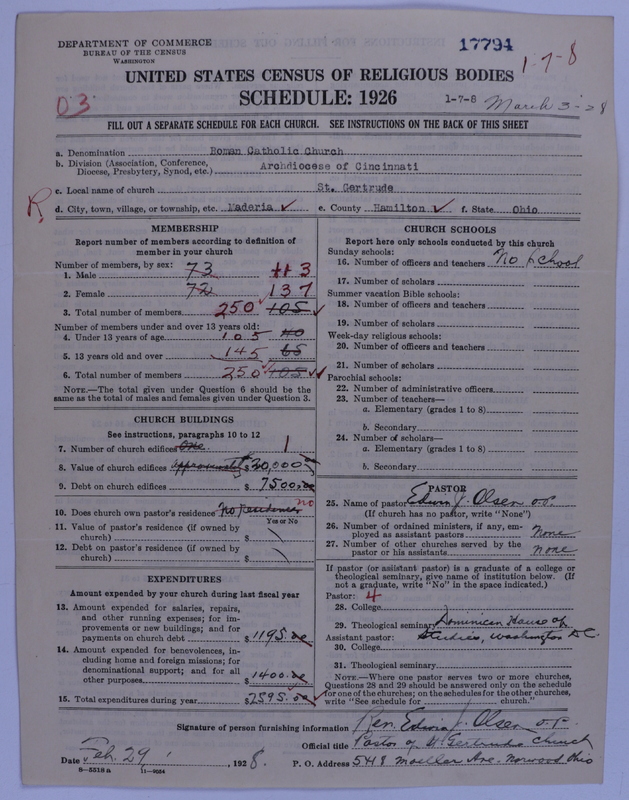 DEPARTMENT OF COMMERCE
BUREAU OF THE CENSUS
WASHINGTON
17794
1-7-8
UNITED STATES CENSUS OF RELIGIOUS BODIES
SCHEDULE: 1926
03
1-7-8 March 3-28
FILL OUT A SEPARATE SCHEDULE FOR EACH CHURCH. SEE INSTRUCTIONS ON THE BACK OF THIS SHEET
a. Denomination Roman Catholic Church
b. Division (Association, Conference, Diocese, Presbytery, Synod, etc.) Archdiocese of Cincinnati
c. Local name of church St. Gertrude
R.
d. City, town, village, or township, etc. Maderia e. County Hamilton f. State Ohio
MEMBERSHIP
Report number of members according to definition of
member in your church
Number of members, by sex:
1. Male 73 113
2. Female 72 137
3. Total number of members 250 105
Number of members under and over 13 years old:
4. Under 13 years of age 105 40
5. 13 years old and over 145 65
6. Total number of members 250 105
NOTE.—The total given under Question 6 should be the
same as the total of males and females given under Question 3.
CHURCH BUILDINGS
See instructions, paragraphs 10 to 12
7. Number of church edifices One 1
8. Value of church edifices approximately $20,000
9. Debt on church edifices $7500.00
10. Does church own pastor's residence? No residence no
Yes or No
11. Value of pastor's residence (if owned by
church) $
12. Debt on pastor's residence (if owned by
church) $
EXPENDITURES
Amount expended by church during last fiscal year
13. Amount expended for salaries, repairs,
and other running expenses; for im-
provements or new buildings; and for
payments on church debt $1195.00
14. Amount expended for benevolences, in-
cluding home and foreign missions; for
denominational support; and for all
other purposes $1400.00
15. Total expenditures during year $2595.00
CHURCH SCHOOLS
Report here only schools conducted by this church
Sunday schools:
16. Number of officers and teachers No School
17. Number of scholars
Summer vacation Bible schools:
18. Number of officers and teachers
19. Number of scholars
Week-day religious schools:
20. Number of officers and teachers
21. Number of scholars
Parochial schools:
22. Number of administrative officers
23. Number of teachers—
a. Elementary (grades 1 to 8)
b. Secondary
24. Number of scholars—
a. Elementary (grades 1 to 8)
b. Secondary
PASTOR
25. Name of pastor Edwin J. Olsen O.P.
(If church has no pastor, write "None")
26. Number of ordained ministers, if any, em-
ployed as assistant pastors none
27. Number of other churches served by the
pastor or his assistants none
If pastor (or assistant pastor) is a graduate of a college or
theological seminary, give name of institution below. (If
not a graduate, write "No" in the space indicated.)
Pastor: 4
28. College
29. Theological seminary Dominican House of
Assistant pastor: Studies, Washington D.C.
30. College
31. Theological seminary
NOTE.—Where one pastor serves two or more churches,
Questions 28 and 29 should be answered only on the schedule
for one of the churches; on the schedules for the other churches,
write "See schedule for church."
Signature of person furnishing information Rev. Edwin J. Olsen O.P.
Official title Pastor of St Gertrude Church
Date Feb. 29, 1928. P. O. Address 5418 Moeller Ave. Norwood Ohio
8-5518 a 11-9034